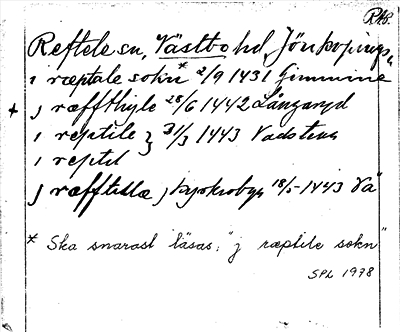 RÄS.
Reftele sn, Västbo hd, Jönköpings l.
i ræptale sokn* 2/9 1431 Gimmine
+ j ræffthyle 28/6 1442 Långaryd
i reptile } 31/3 1443 Vadstena
i reptil
j ræfftislæ j kyrkroby 18/5 1443 Va
* Ska snarast läsas: "j ræptile sokn"
SPL 1978